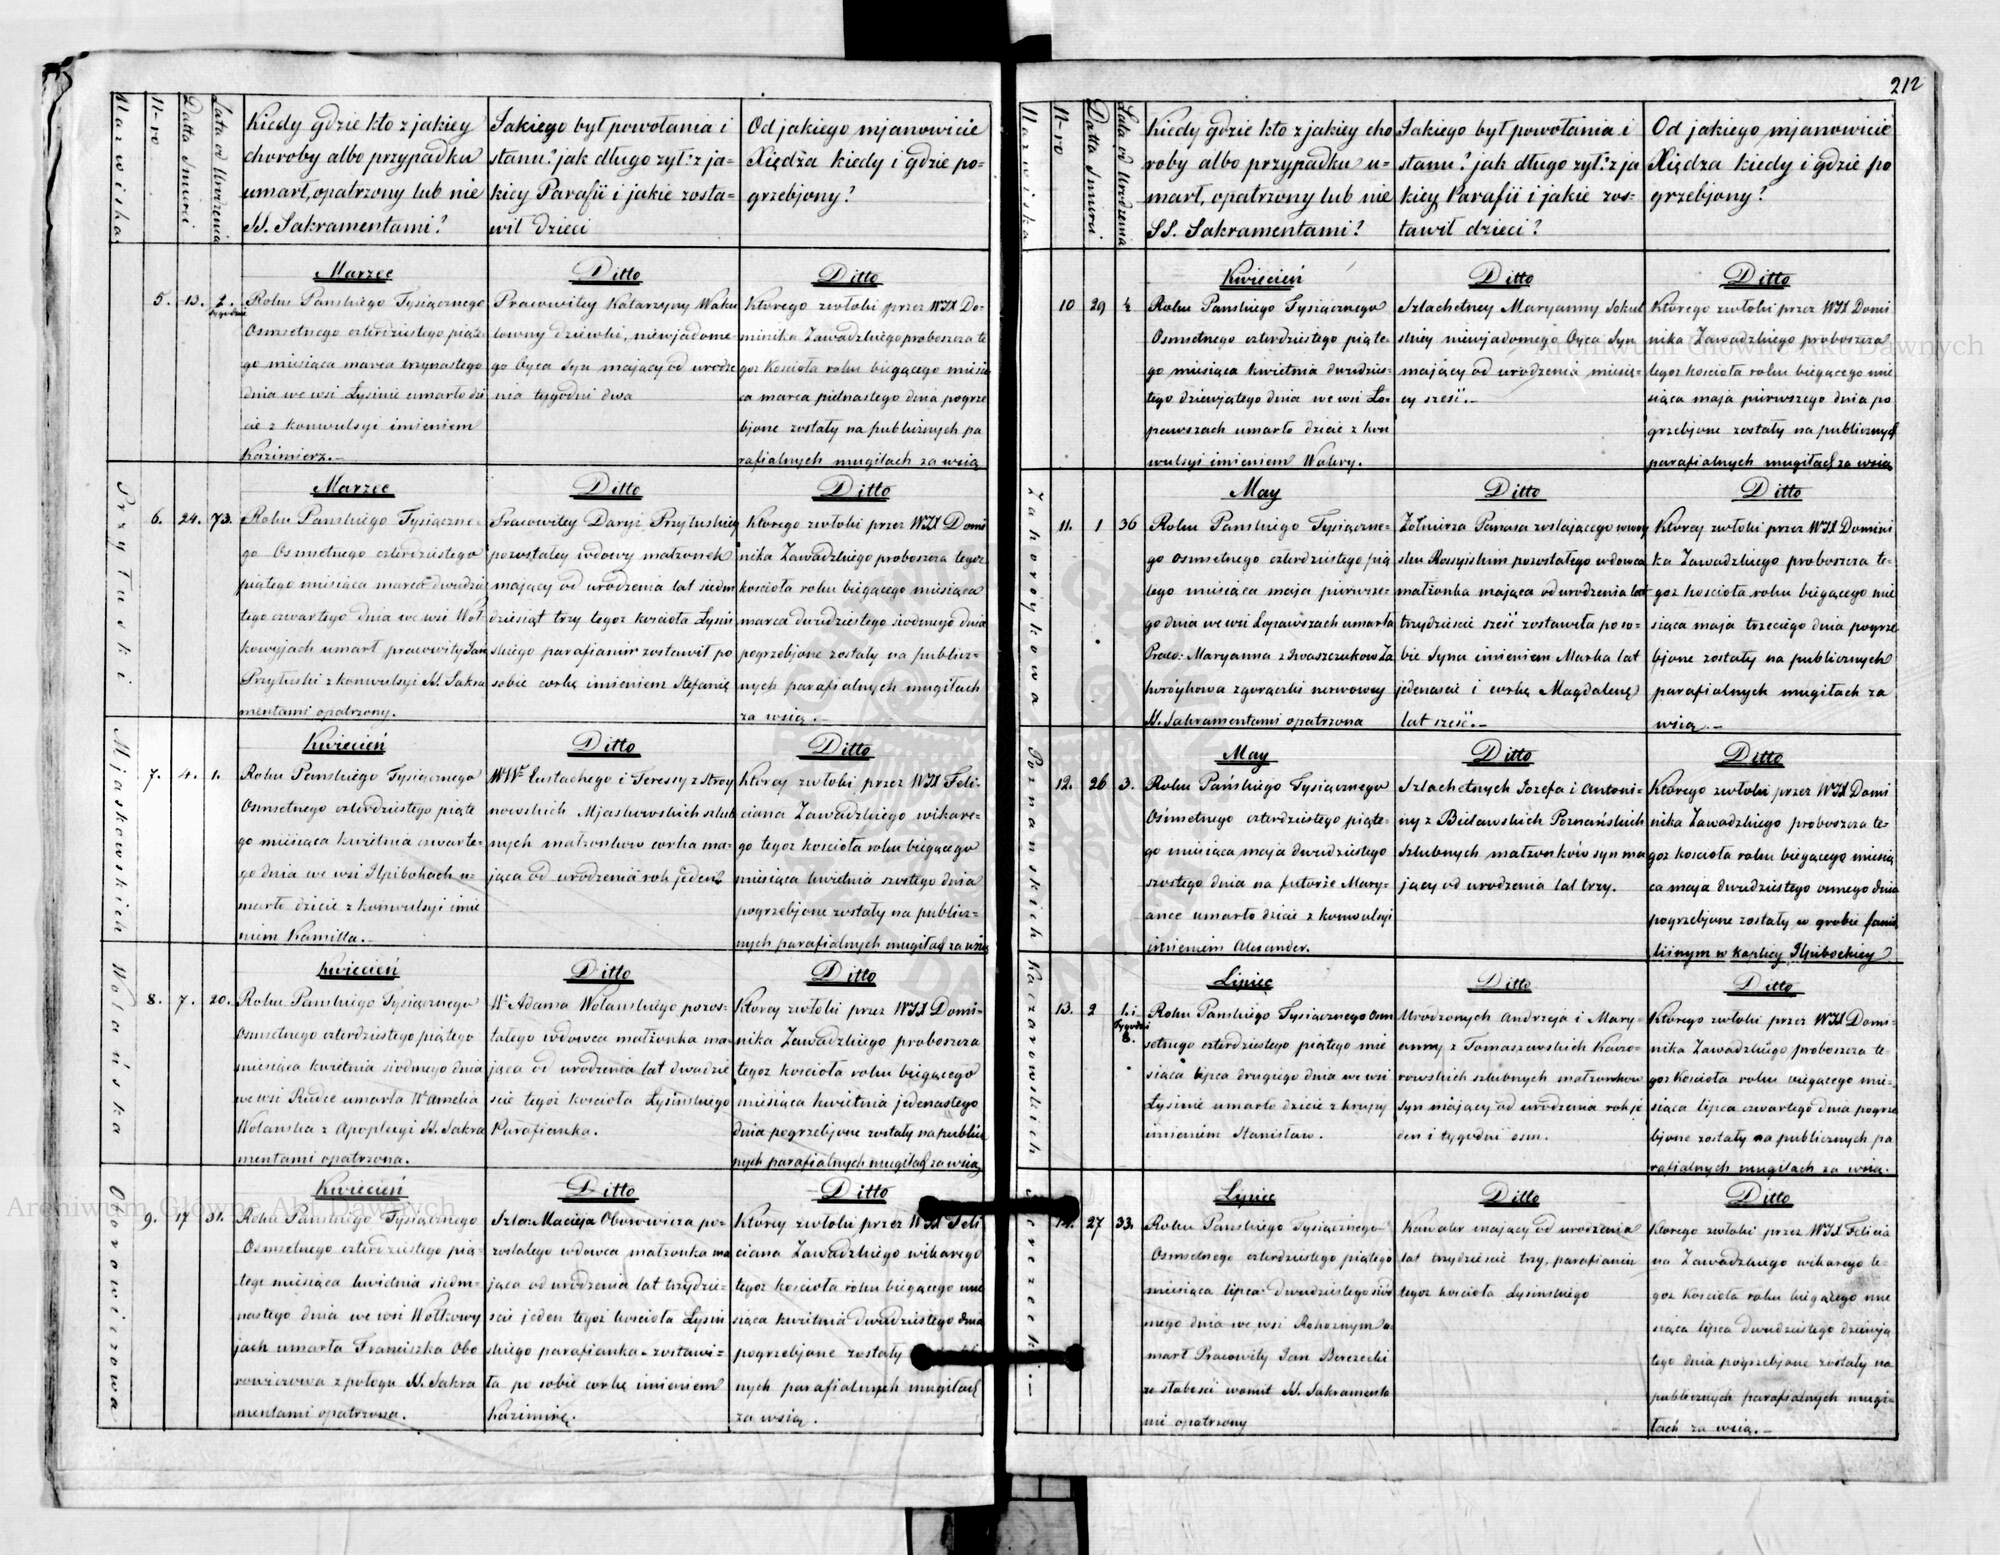 212
Nazwiska
N-ro
Datta Smierci
Lata od Urodzenia
Kiedy gdzie kto z jakiey
choroby albo przypadku
umarł, opatrzony lub nie
SS. Sakramentami?
Jakiego był powołania i
stanu? jak długo żył? z ja-
kiey Parafii i jakie zosta-
wił dzieci
Od jakiego mjanowicie
Xiędza kiedy i gdzie po-
grzebjony?
5. 13. 2. tygodni
Marzec
Roku Panskiego Tysiącznego
Osmsetnego czterdziestego piąte
go miesiąca marca trzynastego
dnia we wsi Łysinie umarło dzi
cie z konwulsyi imieniem
Kazimierz.–
Ditto
Pracowitey Katarzyny Waku
łowny dziewki, niewjadome
go Oyca Syn mający od urodze
nia tygodni dwa
Ditto
Ktorego zwłoki przez WJX Do-
minika Zawadzkiego proboszcza te
goz Koscioła roku biegącego miesią
ca marca pietnastego dnia pogrze
bjone zostały na publicznych pa
rafialnych mogiłach za wsią
Przytuski
6. 24. 73.
Marzec
Roku Panskiego Tysiączne-
go Osmsetnego czterdziestego
piątego miesiąca marca dwudzies
tego czwartego dnia we wsi Woł
kowyjach umarł pracowity Jan
Przytuski z konwulsyi SS. Sakra
mentami opatrzony.
Ditto
Pracowitey Daryi Przytuskiey
pozostałey wdowy małzonek
mający od urodzenia lat siedm
dziesiąt trzy tegoz koscioła Łysin
skiego parafianin zostawił po
sobie corkę imieniem Stefanię
Ditto
Ktorego zwłoki przez WJX Domi
nika Zawadzkiego proboszcza tegoz
koscioła roku biegącego miesiąca
marca dwudziestego siodmego dnia
pogrzebjone zostały na publicz-
nych parafialnych mugiłach
za wsią.–
Mjaskowskich
7. 4. 1.
Kwiecień
Roku Panskiego Tysiącznego
Osmsetnego czterdziestego piąte
go miesiąca kwietnia czwarte-
go dnia we wsi Hpibokach u-
marło dziecie z konwulsyi imie
niem Kamilla.–
Ditto
WWch Eustachego i Teressy z Stroy
nowskich Mjaskowskich szlub
nych małzonkow corka ma-
jąca od urodzenia rok jeden
Ditto
Ktorey zwłoki przez WJX Feli-
ciana Zawadzkiego wikare-
go tegoz koscioła roku biegącego
miesiąca kwietnia szostego dnia
pogrzebjone zostały na publicz-
nych parafialnych mugiłach za wsią
Wolańska
8. 7. 20.
Kwiecień
Roku Panskiego Tysiącznego
osmsetnego czterdziestego piątego
miesiąca kwietnia siodmego dnia
we wsi Rudce umarła Wa Amelia
Wolanska z Apoplexyi SS. Sakra
mentami opatrzona.
Ditto
Wo Adama Wolanskiego pozos-
tałego wdowca małzonka ma-
jąca od urodzenia lat dwadzie
scie tegoz koscioła Łysinskiego
Parafianka.
Ditto
Ktorey zwłoki przez WJX Domi-
nika Zawadzkiego proboszcza
tegoz koscioła roku biegącego
miesiąca kwietnia jedenastego
dnia pogrzebjone zostały na public
nych parafialnych mugiłach za wsią
Oborowiczowa
9. 17 31.
Kwiecień
Roku Panskiego Tysiącznego
Osmsetnego czterdziestego pią-
tego miesiąca kwietnia siedm-
nastego dnia we wsi Wołkowy
jach umarła Franciszka Obo
rowiczowa z połogu SS. Sakra
mentami opatrzona.
Ditto
Szlae: Macieja Oborowicza po-
zostałego wdowca małzonka ma
jąca od urodzenia lat trzydzie-
scie jeden tegoz kosciola Łysin
skiego parafianka zostawi-
ła po sobie corkę imieniem
Kazimirę.
Ditto
Ktorey zwłoki przez WJX Feli
ciana Zawadzkiego wikarego
tegoz kosciola roku biegącego mie
siąca kwietnia dwudziestego dnia
pogrzebjone zostały
nych parafialnych mugiłach
za wsią.
Nazwiska
N-ro
Datta Smierci
Lata od Urodzenia
Kiedy gdzie kto z jakiey cho
roby albo przypadku u-
marł, opatrzony lub nie
SS. Sakramentami?
Jakiego był powołania i
stanu? jak długo żył? z ja
kiey Parafii i jakie zos-
tawił dzieci?
Od jakiego mjanowicie
Xiędza kiedy i gdzie po
grzebjony?
10 29 ½
Kwiecień
Roku Panskiego Tysiącznego
Osmsetnego czterdziestego piąte-
go miesiąca kwietnia dwudzies-
tego dziewjątego dnia we wsi Ło-
pawszach umarło dziecie z kon
wulsyi imieniem Walery.
Ditto
Szlachetney Maryanny Sokul
skiey niewjadomego Oyca Syn
mający od urodzenia miesię-
cy szesć.–
Ditto
Ktorego zwłoki przez WJX Domi
nika Zawadzkiego proboszcza
tegoz kosciola roku biegącego mie
siąca maja pierwszego dnia po
grzebjone zostały na publicznych
parafialnych mugiłach za wsią
Zahorójkowa
11. 1 36
May
Roku Panskiego Tysiączne-
go osmsetnego czterdziestego pią
tego miesiąca maja pierwsze-
go dnia we wsi Łopawszach umarła
Praco: Maryanna z Iwaszczukow Za
horójkowa z gorączki nerwowey
SS. Sakramentami opatrzona
Ditto
Żołnierza Panasa zostającego w woy
sku Rossyiskim pozostałego wdowca
małzonka mająca od urodzenia lat
trzydziescie szesć zostawiła po so-
bie Syna imieniem Marka lat
jedenascie i corkę Magdalenę
lat szesć.–
Ditto
Ktorey zwłoki przez WJX Domini
ka Zawadzkiego proboszcza te-
goz kosciola roku biegącego mie
siąca maja trzeciego dnia pogrze
bjone zostały na publicznych
parafialnych mugiłach za
wsią.–
Poznanskich
12. 26 3.
May
Roku Pańskiego Tysiącznego
Ośmsetnego czterdziestego piąte-
go miesiąca maja dwudziestego
szostego dnia na futorze Mary-
ance umarło dziecie z konwulsyi
imieniem Alexander.
Ditto
Szlachetnych Jozefa i Antoni-
ny z Bielawskich Poznańskich
szlubnych małzonków syn ma
jący od urodzenia lat trzy.
Ditto
Ktorego zwłoki przez WJX Domi
nika Zawadzkiego proboszcza te-
goz kosciola roku biegącego miesią
ca maja dwudziestego osmego dnia
pogrzebjone zostały w grobie fami
lijnym w kaplicy Hpibockiey
Kaczorowskich
13. 2 1. i Tygodni 8.
Lipiec
Roku Panskiego Tysiącznego osm
setnego czterdziestego piątego mie
siąca lipca drugiego dnia we wsi
Łysinie umarło dziecie z krupy
imieniem Stanisław.
Ditto
Urodzonych Andrzeja i Mary-
anny z Tomaszewskich Kaczo-
rowskich szlubnych małzonkow
syn mający od urodzenia rok je
den i tygodni osm.
Ditto
Ktorego zwłoki przez WJX Domi-
nika Zawadzkiego proboszcza te-
goz kosciola roku biegącego mie-
siąca lipca czwartego dnia pogrze
bjone zostały na publicznych pa
rafialnych mugiłach za wsią.
Berezecki.–
14. 27 33.
Lipiec
Roku Panskiego Tysiącznego
Osmsetnego czterdziestego piątego
miesiąca lipca dwudziestego siod
mego dnia we wsi Rohoznym u-
marł Pracowity Jan Berezecki
ze słabosci womit SS. Sakramenta
mi opatrzony
Ditto
Kawaler mający od urodzenia
lat trzydziescie trzy, parafianin
tegoz kosciola Łysinskiego
Ditto
Ktorego zwłoki przez WJX Felicia
na Zawadzkiego wikarego te-
goz kosciola roku biegącego mie
siąca lipca dwudziestego dziewją
tego dnia pogrzebjone zostały na
publicznych parafialnych mugi-
łach za wsią.–
Archiwum Główne Akt Dawnych
Archiwum Główne Akt Dawnych